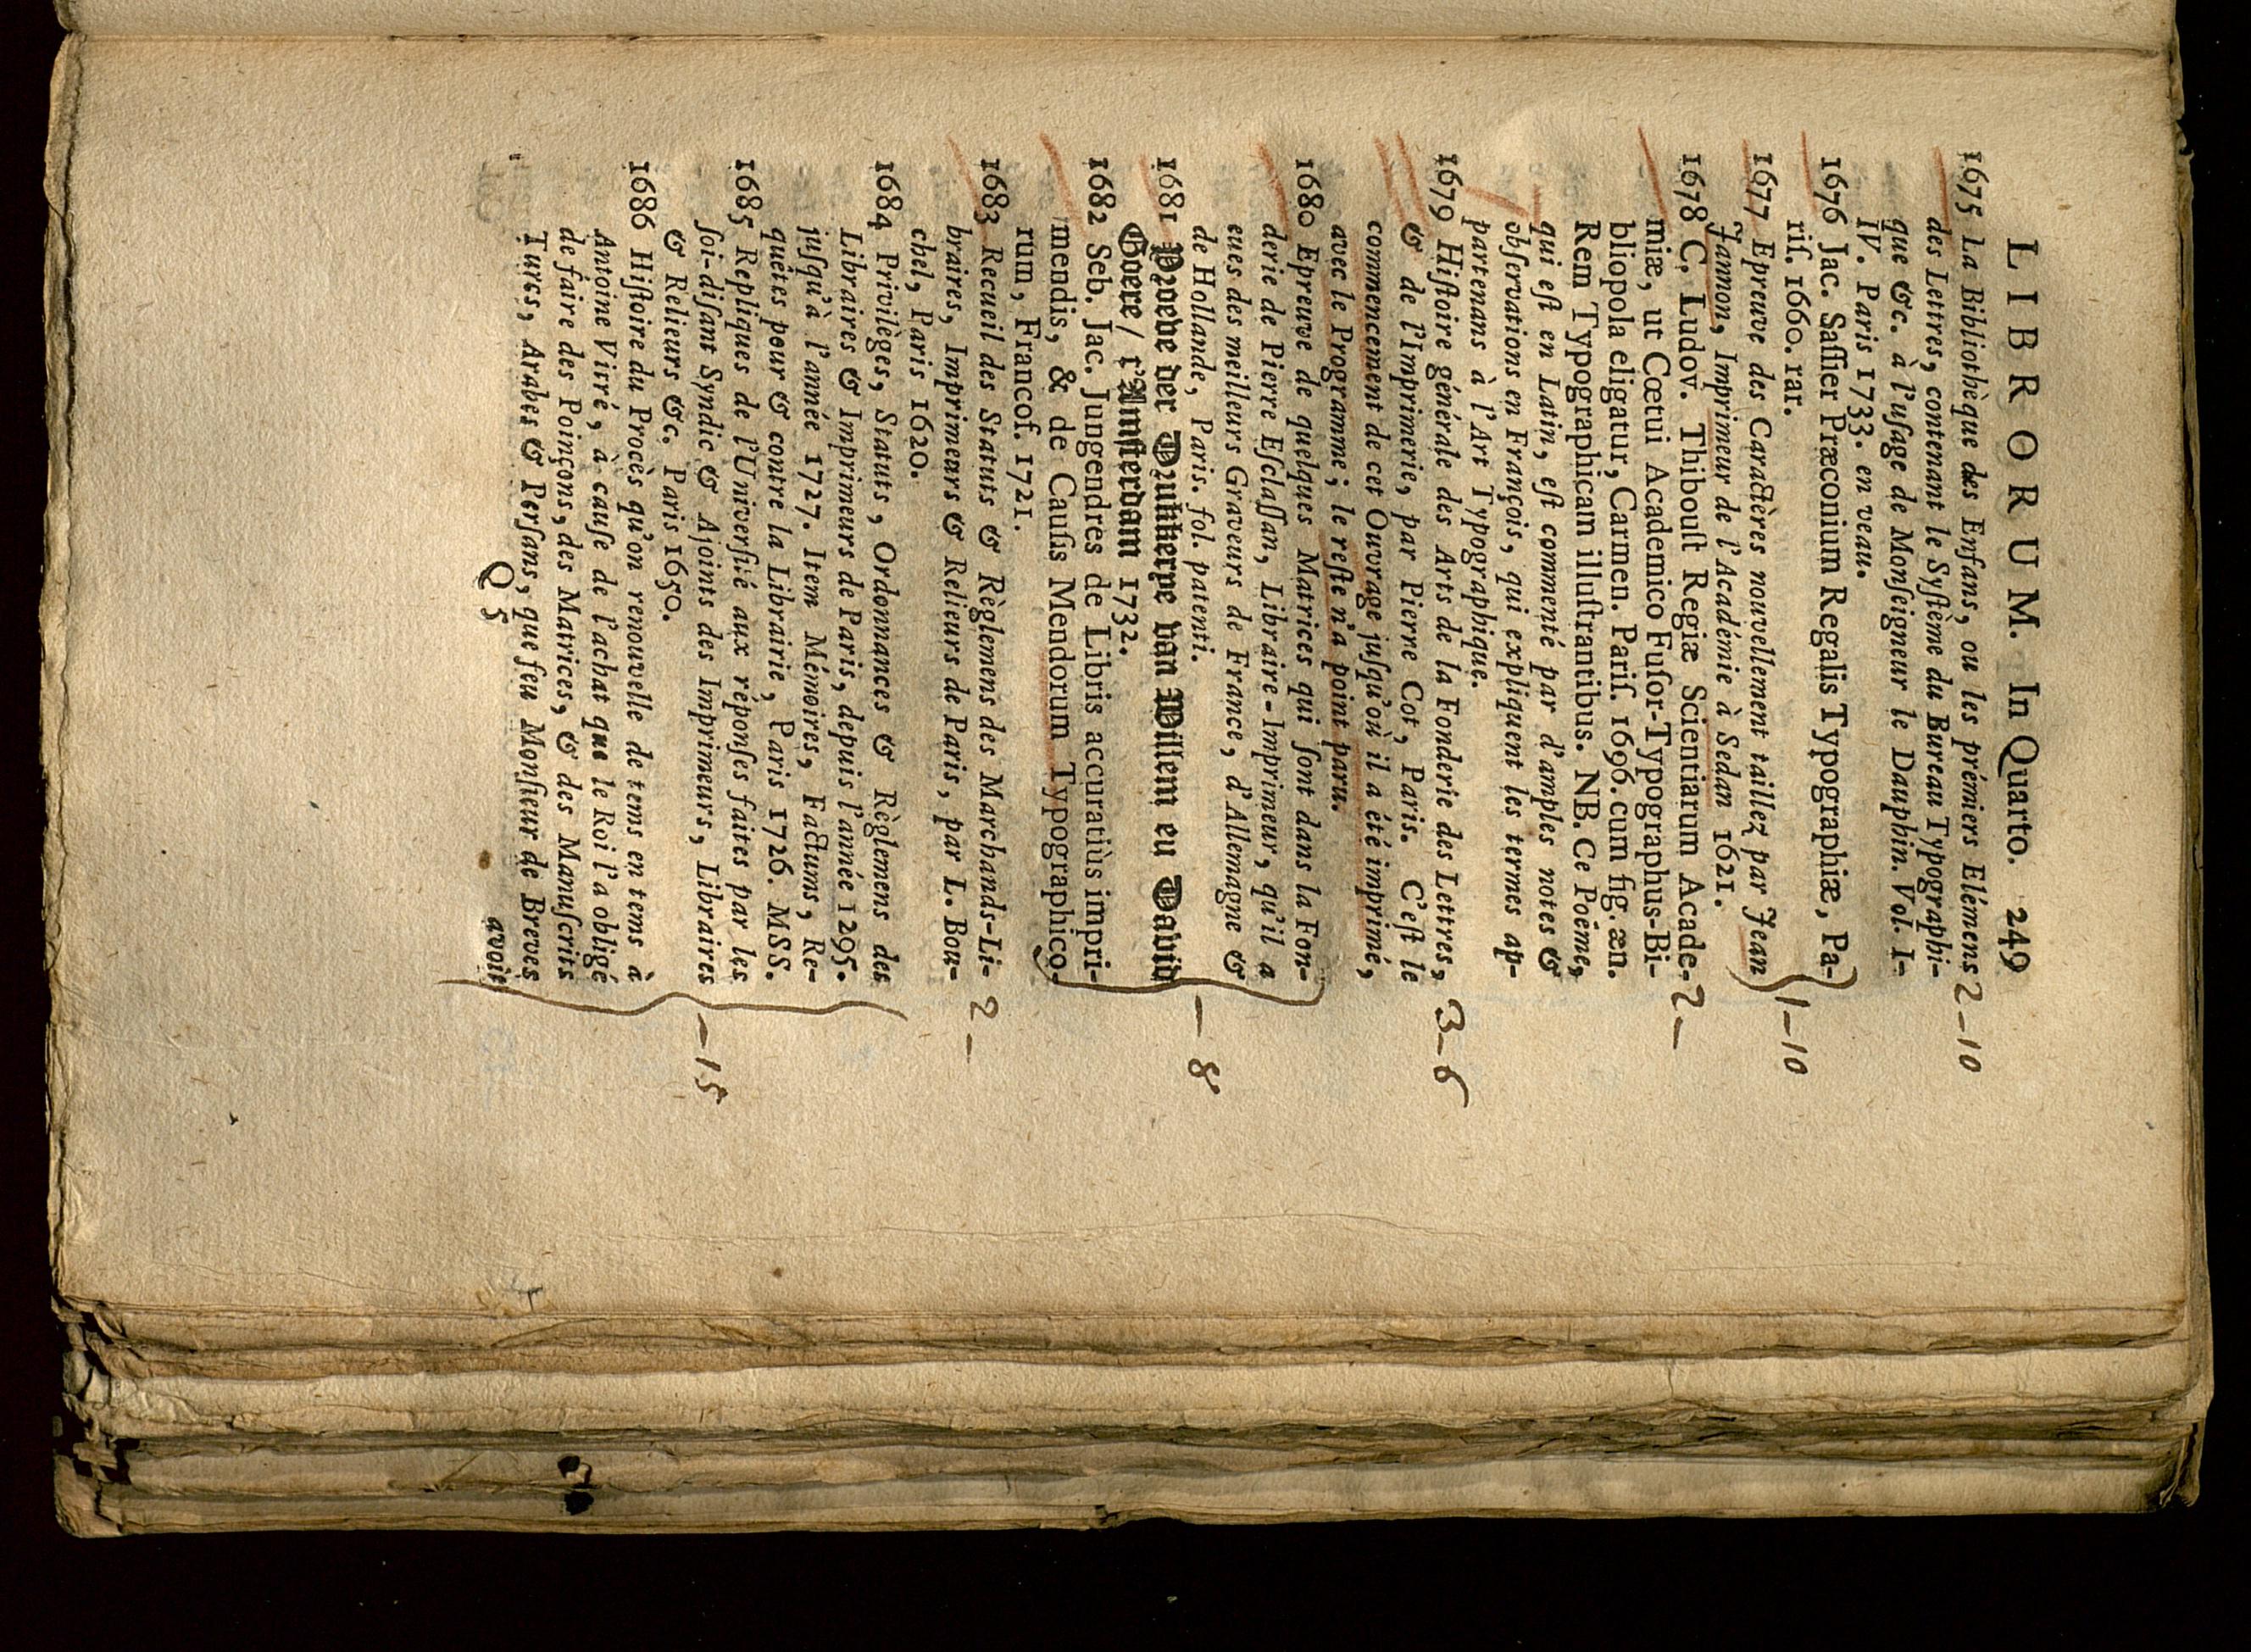 LIBRORUM. In Quarto. 249
1675 La Bibliothèque des Enfans, ou les prémiers Elémens 2-10
des Letres, contenant le Syſtème du Bureau Typographi-
que &c. à l'uſage de Monſeigneur le Dauphin. Vol. I-
IV. Paris 1733. en veau.
1676 Jac. Saſſier Præconium Regalis Typographiæ, Pa-
riſ. 1660. rar.
1-10
1677 Epreuve des Caractères nouvellement taillez par Jean
Jannon, Imprimeur de l'Académie à Sedan 1621.
1678 C. Ludov. Thibouſt Regiæ Scientiarum Acade- 2-
miæ, ut Cœtui Academico Fuſor-Typographus-Bi-
bliopola eligatur, Carmen. Pariſ. 1696. cum fig. æn.
Rem Typographicam illuſtrantibus. NB. Ce Poéme,
qui eſt en Latin, eſt commenté par d'amples notes &
obſervations en François, qui expliquent les termes ap-
partenans à l'Art Typographique.
1679 Hiſtoire générale des Arts de la Fonderie des Lettres, 3-6
& de l'Imprimerie, par Pierre Cot, Paris. C'eſt le
commencement de cet Ouvrage juſqu'où il a été imprimé,
avec le Programme; le reſte n'a point paru.
1680 Epreuve de quelques Matrices qui ſont dans la Fon-
derie de Pierre Eſclaſſan, Libraire-Imprimeur, qu'il a
eues des meilleurs Graveurs de France, d'Allemagne &
de Hollande, Paris. fol. patenti.
-8
1681 Proeve der Drukkerye van Willem en David
Goere / t'Amſterdam 1732.
1682 Seb. Jac. Jungendres de Libris accuratiùs impri-
mendis, & de Cauſis Mendorum Typographico-
rum, Francof. 1721.
1683 Recueil des Statuts & Règlemens des Marchands-Li- 2-
braires, Imprimeurs & Relieurs de Paris, par L. Bou-
chel, Paris 1620.
1684 Privilèges, Statuts, Ordonnances & Règlemens des
Libraires & Imprimeurs de Paris, depuis l'année 1295.
juſqu'à l'année 1727. Item Mémoires, Factums, Re-
quêtes pour & contre la Librairie, Paris 1726. MSS.
1685 Repliques de l'Univerſité aux réponſes faites par les
ſoi-diſant Syndic & Ajoints des Imprimeurs, Libraires
& Relieurs &c. Paris 1650.
-15
1686 Hiſtoire du Procès qu'on renouvelle de tems en tems à
Antoine Vitré, à cauſe de l'achat que le Roi l'a obligé
de faire des Poinçons, des Matrices, & des Manuſcrits
Turcs, Arabes & Perſans, que feu Monſieur de Breves
Q 5 avoit